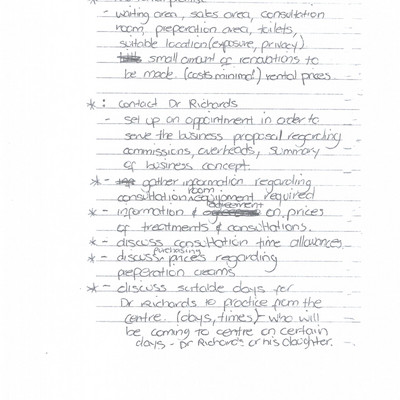 - waiting area, sales area, consultation
room, preperation area, toilets,
suitable location (exposure, privacy)
small amount of renovations to
be made. (costs minimal) rental prices.
* : Contact Dr Richards
- set up an appointment in order to
serve the business proposal regarding
commissions, overheads, summary
of business concept.
* - gather information regarding
consultation room equipment required
* - information & agreement on prices
of treatments & consultations.
* - discuss consultation time allowances
* - discuss purchasing prices regarding
preperation creams
* - discuss suitable days for
Dr Richards to practice from the
centre. (days, times) - who will
be coming to centre on certain
days - Dr Richards or his daughter.